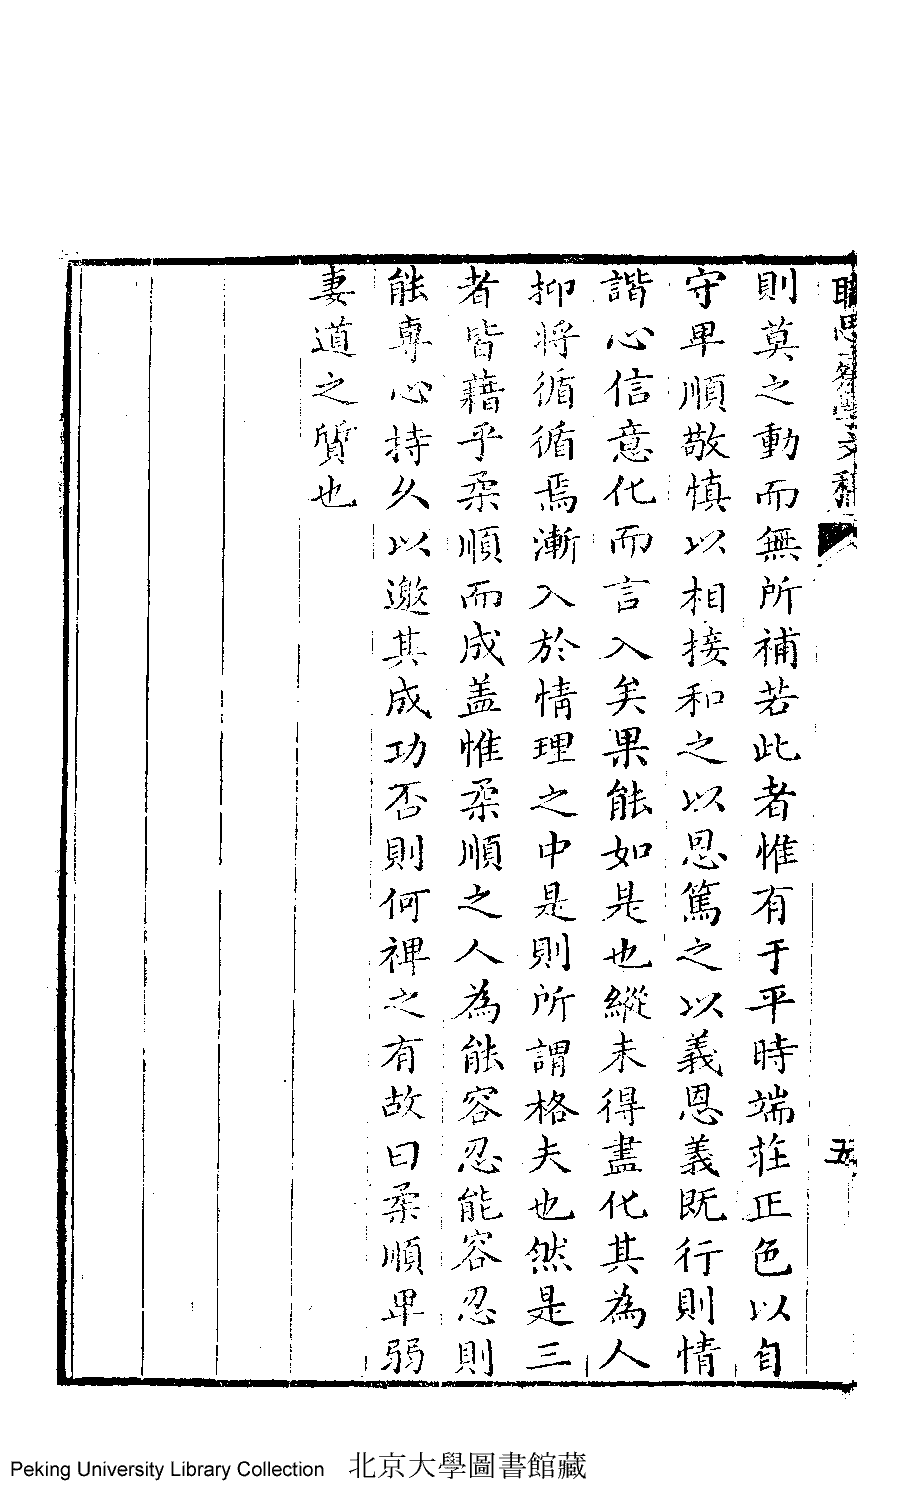 則莫之動而無所補若此者惟有于平時端莊正色以自
守卑順敬慎以相接和之以恩篤之以義恩義既行則情
諧心信意化而言入矣果能如是也縱未得盡化其為人
抑將循循焉漸入於情理之中是則所謂格夫也然是三
者皆藉乎柔順而成盖惟柔順之人為能容忍能容忍則
能專心持久以邀其成功否則何裨之有故曰柔順卑弱
妻道之質也
五
Peking University Library Collection 北京大學圖書館藏